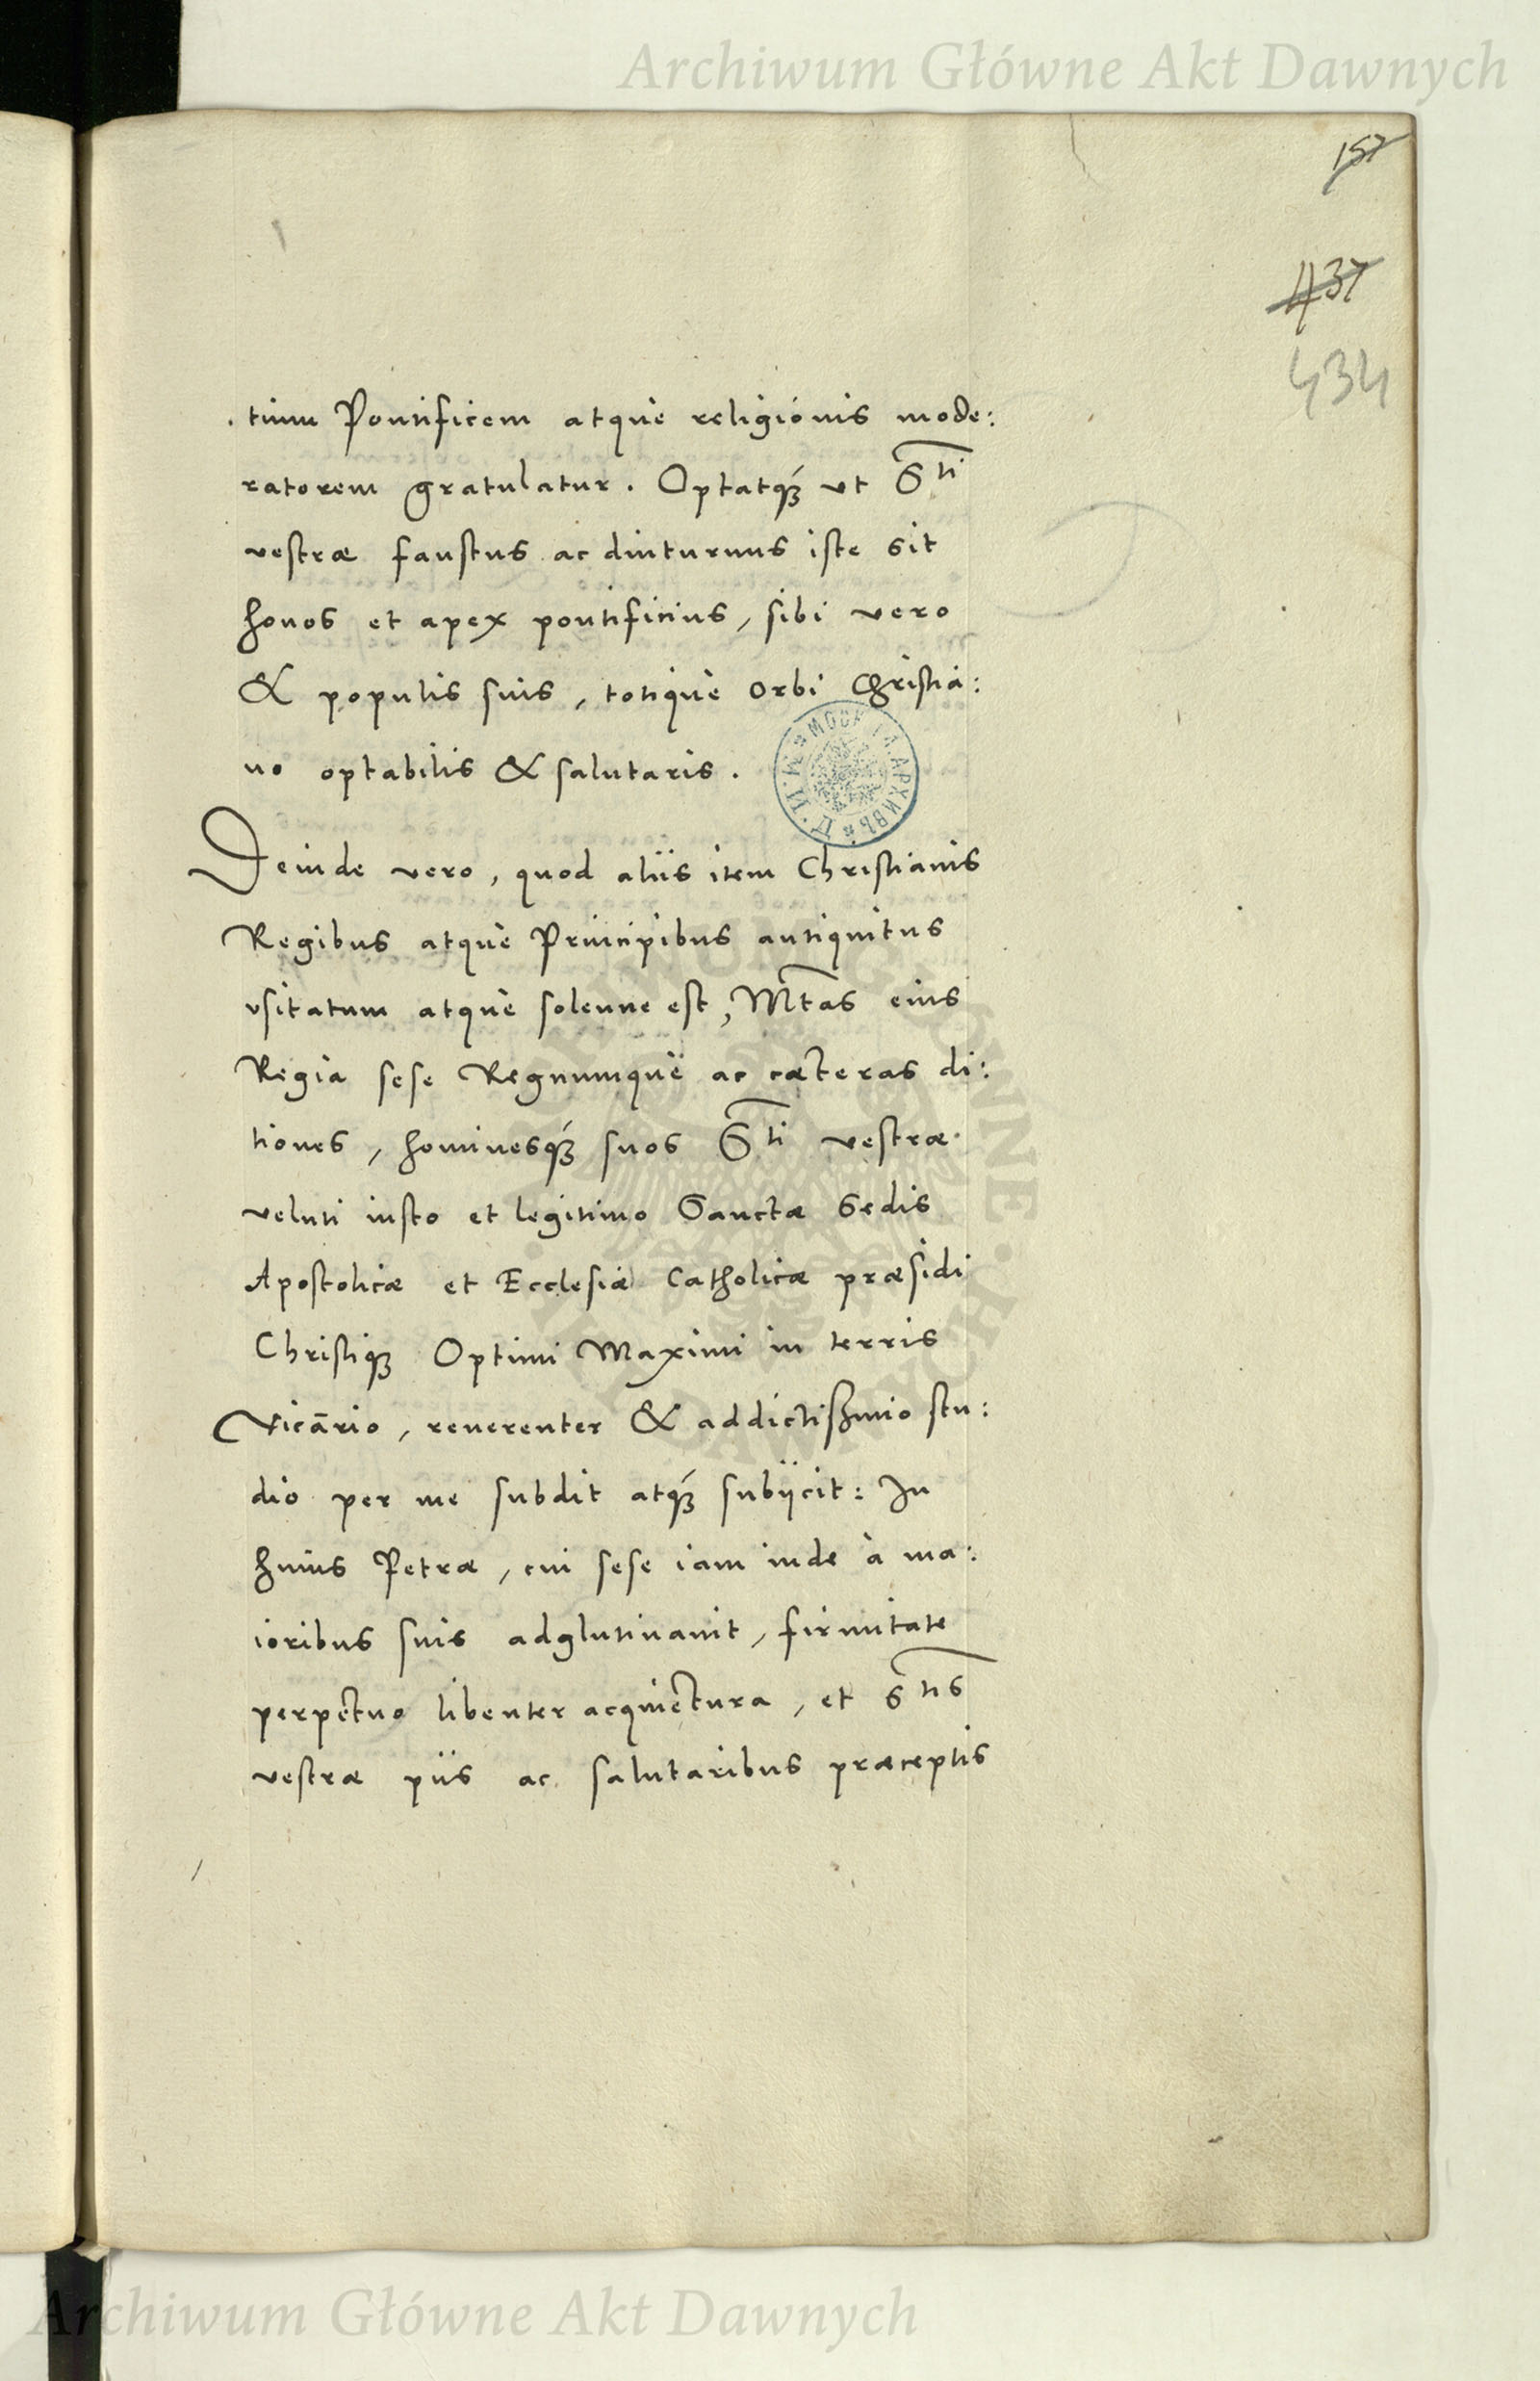 Archiwum Główne Akt Dawnych
157
437
434
timu Pontificem atque religionis mode:
ratorem gratulatur. Optatq́ue ut S^ti
vestræ faustus ac diuturnus iste sit
honos et apex pontificius, sibi vero
& populis suis, totique orbi Christia:
no optabilis & salutaris.
Deinde vero, quod aliis item Christianis
Regibus atque Principibus antiquitus
usitatum atque solenne est, Mtas eius
Regia sese Regnumque ac cæteras di:
tiones, hominesq́ue suos S^ti vestræ
veluti iusto et legitimo Sanctæ Sedis
Apostolicæ et Ecclesiæ Catholicæ præsidi
Christique Optimi Maximi in terris
Vicario, reverenter & addictissimo stu:
dio per me subdit atq́ue subijcit: In
huius Petræ, cui sese iam inde à ma:
ioribus suis adglutinauit, firmitate
perpetuo libenter acquietura, et S^tis
vestræ piis ac salutaribus præceptis
Archiwum Główne Akt Dawnych